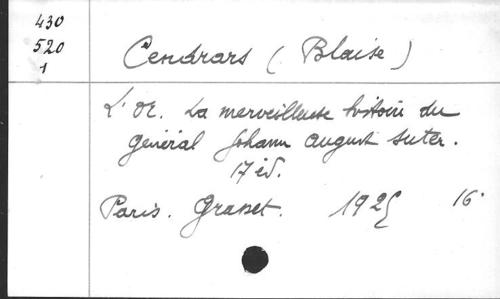 430
520
1
Cendrars (Blaise)
L'Or. La merveilleuse histoire du
général Johann August Suter.
17 éd.
Paris. Grasset. 1925 16°